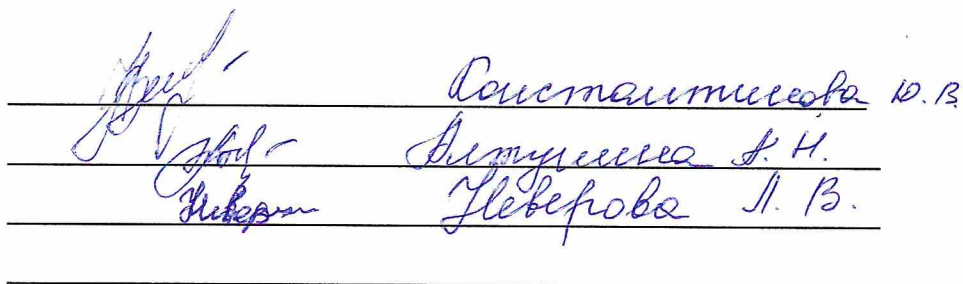 Константинова Ю.В.
Алтунина А.Н.
Неверова Л.В.